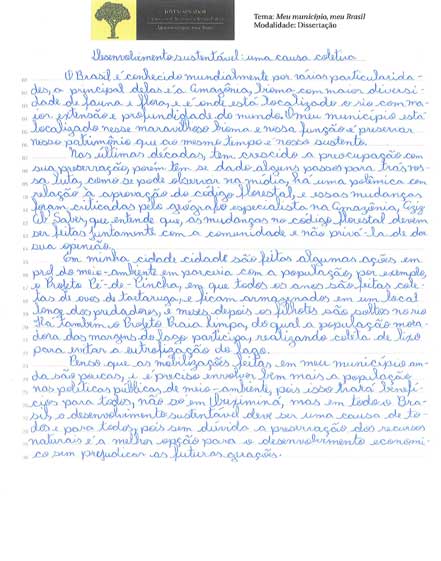 JOVEM SENADOR
Tema: Meu município, meu Brasil
Modalidade: Dissertação
Desenvolvimento sustentável: uma causa coletiva
O Brasil é conhecido mundialmente por várias particularida-
des, a principal delas é a Amazônia, bioma com maior diversi-
dade de fauna e flora, e é onde está localizado o rio com ma-
ior extensão e profundidade do mundo. O meu município está
localizado nesse maravilhoso bioma e nossa função é preservar
nosso patrimônio que ao mesmo tempo é nosso sustento.
Nas últimas décadas, tem crescido a preocupação com
sua preservação, porém tem se dado alguns passos para trás nos-
sa luta, como se pode observar na mídia, há uma polêmica com
relação à aprovação do código florestal, e essas mudanças
foram criticadas pelo geógrafo especialista na Amazônia, Aziz
Ab'Saber, que entende que, as mudanças no código florestal devem
ser feitas juntamente com a comunidade e não privá-la de dar
sua openião.
Em minha cidade cidade são feitas algumas ações em
prol do meio-ambiente em parceria com a população, por exemplo,
o Projeto Pé-de-Pincha, em que todos os anos são feitas cole-
tas de ovos de tartaruga, e ficam armazenados em um local
longe dos predadores, e meses depois os filhotes são soltos no rio
Há também o Projeto Praia limpa, do qual a população mora-
dora das margens do lago participa, realizando coleta de lixo
para evitar a eutrofização do lago.
Penso que as mobilizações feitas em meu município ain-
da são poucas, e é preciso envolver bem mais a população
nas políticas públicas de meio-ambiente, pois isso trará benefí-
cios para todos, não só em Oriximiná, mas em todo o Bra-
sil, o desenvolvimento sustentável deve ser uma causa de to-
dos e para todos, pois sem dúvida a preservação dos recursos
naturais é a melhor opção para o desenvolvimento econômi-
co sem prejudicar as futuras gerações.